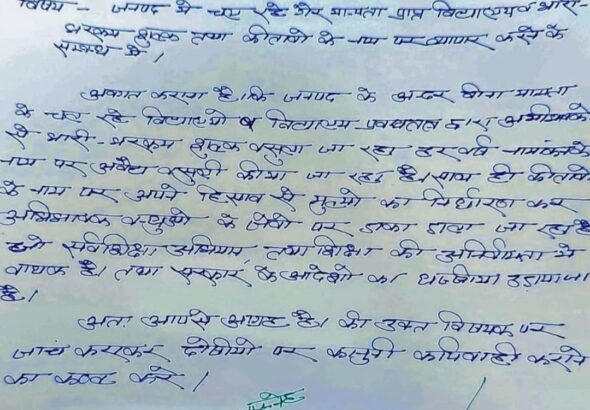 विषय - जनपद मे चल रहे गैर मान्यता प्राप्त विद्यालय व भारी-
भरकम शुल्क तथा कीताबो के नाम पर व्यापार करने के
सम्बन्ध मे।
अवगत कराना है। कि जनपद के अन्दर बीना मान्यता
के चल रहे विद्यालयो व विद्यालय प्रबंधतंत्र द्वारा अभीभावको
से भारी-भरकम शुल्क वसुला जा रहा हर वर्ष नामांकन के
नाम पर अवैध वसुली कीया जा रहा है। साथ ही कीताबो
के नाम पर अपने हिसाब से मुल्यो का निर्धारण कर
अभिभावक बन्धुओ के जेबो पर डाका डाला जा रहा है
जो सर्वशिक्षा अभियान, तथा शिक्षा की अनिवार्यता मे
बाधक है। तथा सरकार के आदेशो का धज्जीया उडाया जा
है।
अतः आपसे आग्रह है। की उक्त विषयक पर
जांच कराकर दोषीयो पर कानुनी कार्यवाही करने
का कष्ट करे।